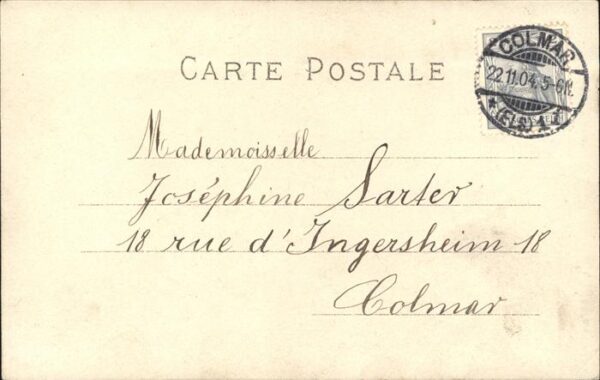 CARTE POSTALE
COLMAR
22.11.04. 5-6N.
* (ELS) 1. *
Mademoisselle
Joséphine Sarter
18 rue d'Ingersheim 18
Colmar